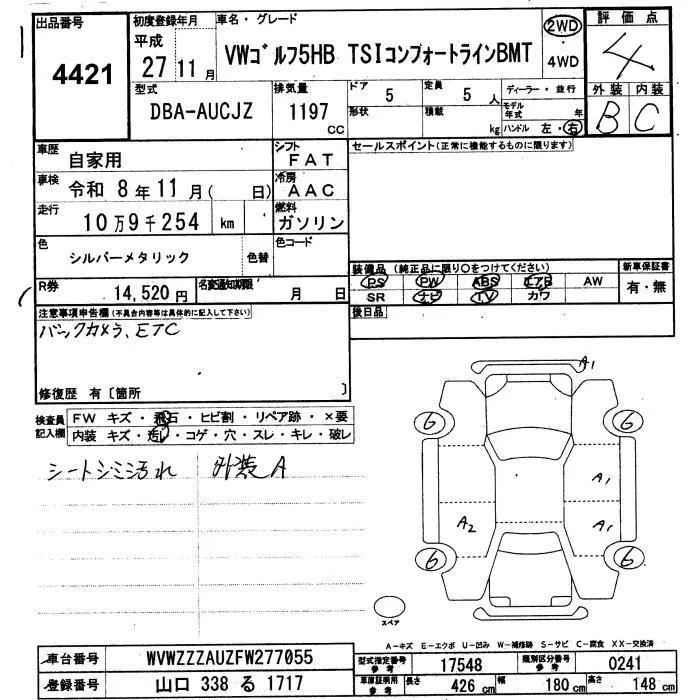 出品番号
4421
初度登録年月
平成
27 11月
車名・グレード
VWゴルフ5HB TSIコンフォートラインBMT
2WD
4WD
評価点
4
外装 内装
B C
型式
DBA-AUCJZ
排気量
1197
CC
ドア
5
定員
5 人
形状
積載
kg
ディーラー・並行
モデル年式 年
ハンドル 左・右
車歴
自家用
シフト
FAT
車検
令和 8年 11月( 日)
冷房
AAC
走行
10万9千254 km
燃料
ガソリン
色
シルバーメタリック
色替
色コード
R券
14,520円
名変通知期限
月 日
セールスポイント(正常に機能するものに限ります)
装備品 (純正品に限り○をつけてください)
PS PW ABS エアB AW
SR ナビ TV カワ
新車保証書
有・無
後日品
注意事項申告欄(不具合内容等は具体的に記入して下さい)
バックカメラ、ETC
修復歴 有〔箇所 〕
検査員記入欄
FW キズ・飛石・ヒビ割・リペア跡・×要
内装 キズ・汚レ・コゲ・穴・スレ・キレ・破レ
シートシミ汚れ 外装A
A1
6
6
A1
A2
A1
6
6
スペア
A-キズ E-エクボ U-凹み W-補修跡 S-サビ C-腐食 XX-交換済
車台番号
WVWZZZAUZFW277055
登録番号
山口 338 る 1717
型式指定番号参考
17548
類別区分番号参考
0241
車庫証明用参考
長さ 426cm 幅 180cm 高さ 148cm